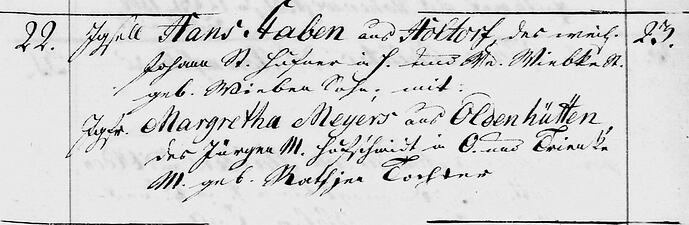 22. Jgsell Hans Staben aus Holtorf, des weil. 23.
Johann St. Hufner in H. und We. Wiebke St.
geb. Wieben Sohn, mit:
Jgfr. Margretha Meyers aus Oldenhütten,
des Jürgen M. Hufschmidt in O. und Trienke
M. geb. Rathjen Tochter